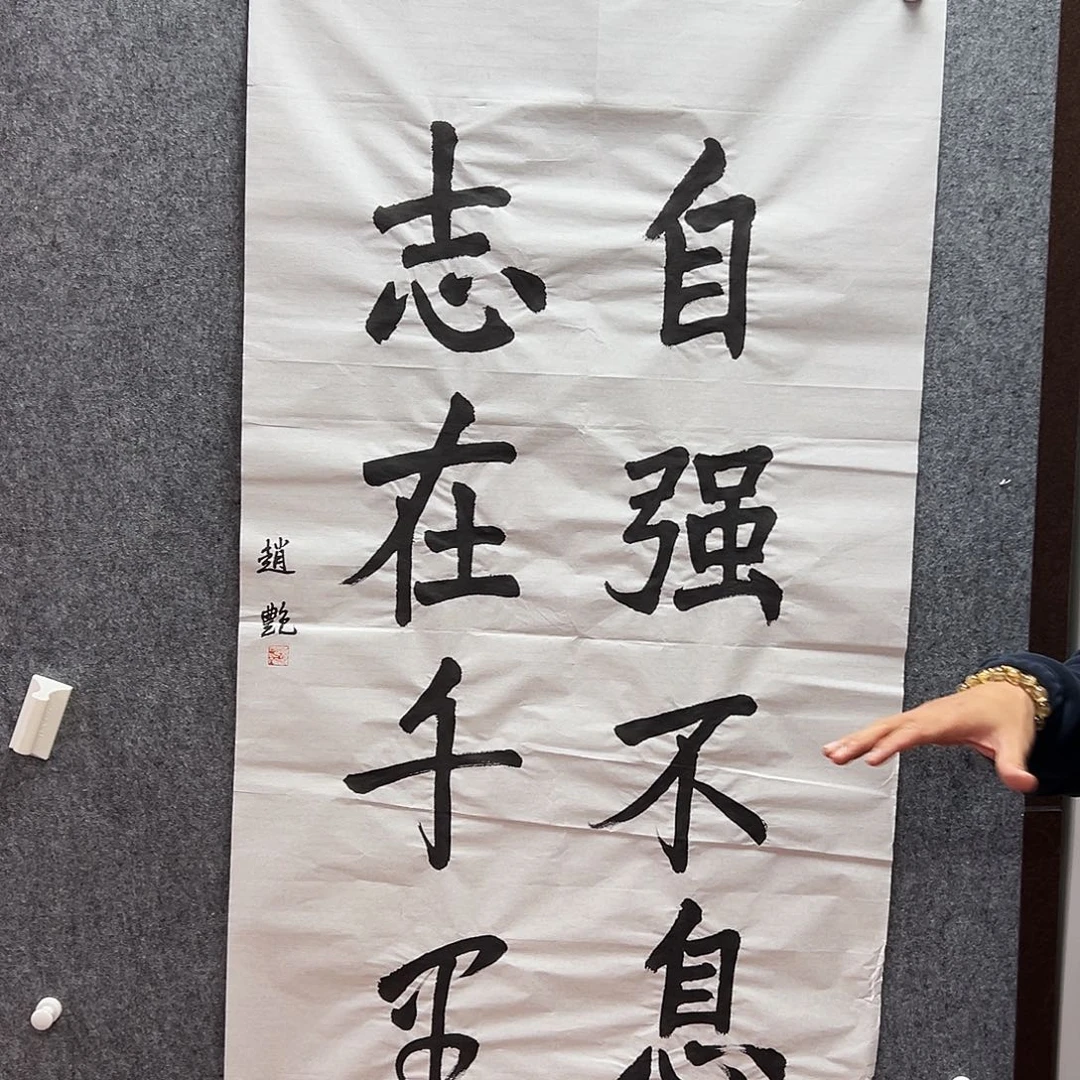 自强不息
志在千里
趙艷